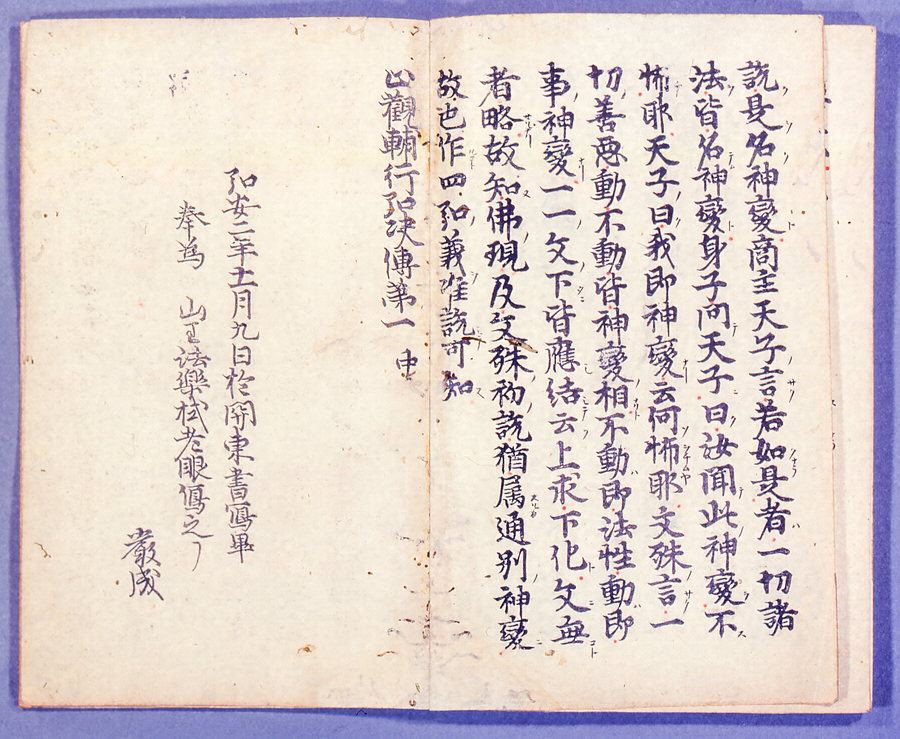 説是名神變商主天子言若如是者一切諸
法皆名神變身子問天子曰汝聞此神變不
怖耶天子曰我即神變云何怖耶文殊言一
切善惡動不動皆神變相不動即法性動即
事神變一一文下皆應結云上求下化文無
者略故知佛現及文殊初説猶属通別神變
故也作四弘義准説可知
止觀輔行弘决傳第一 中
弘安二年十一月九日於関東書寫畢
奉為 山王法樂拭老眼寫之
嚴成